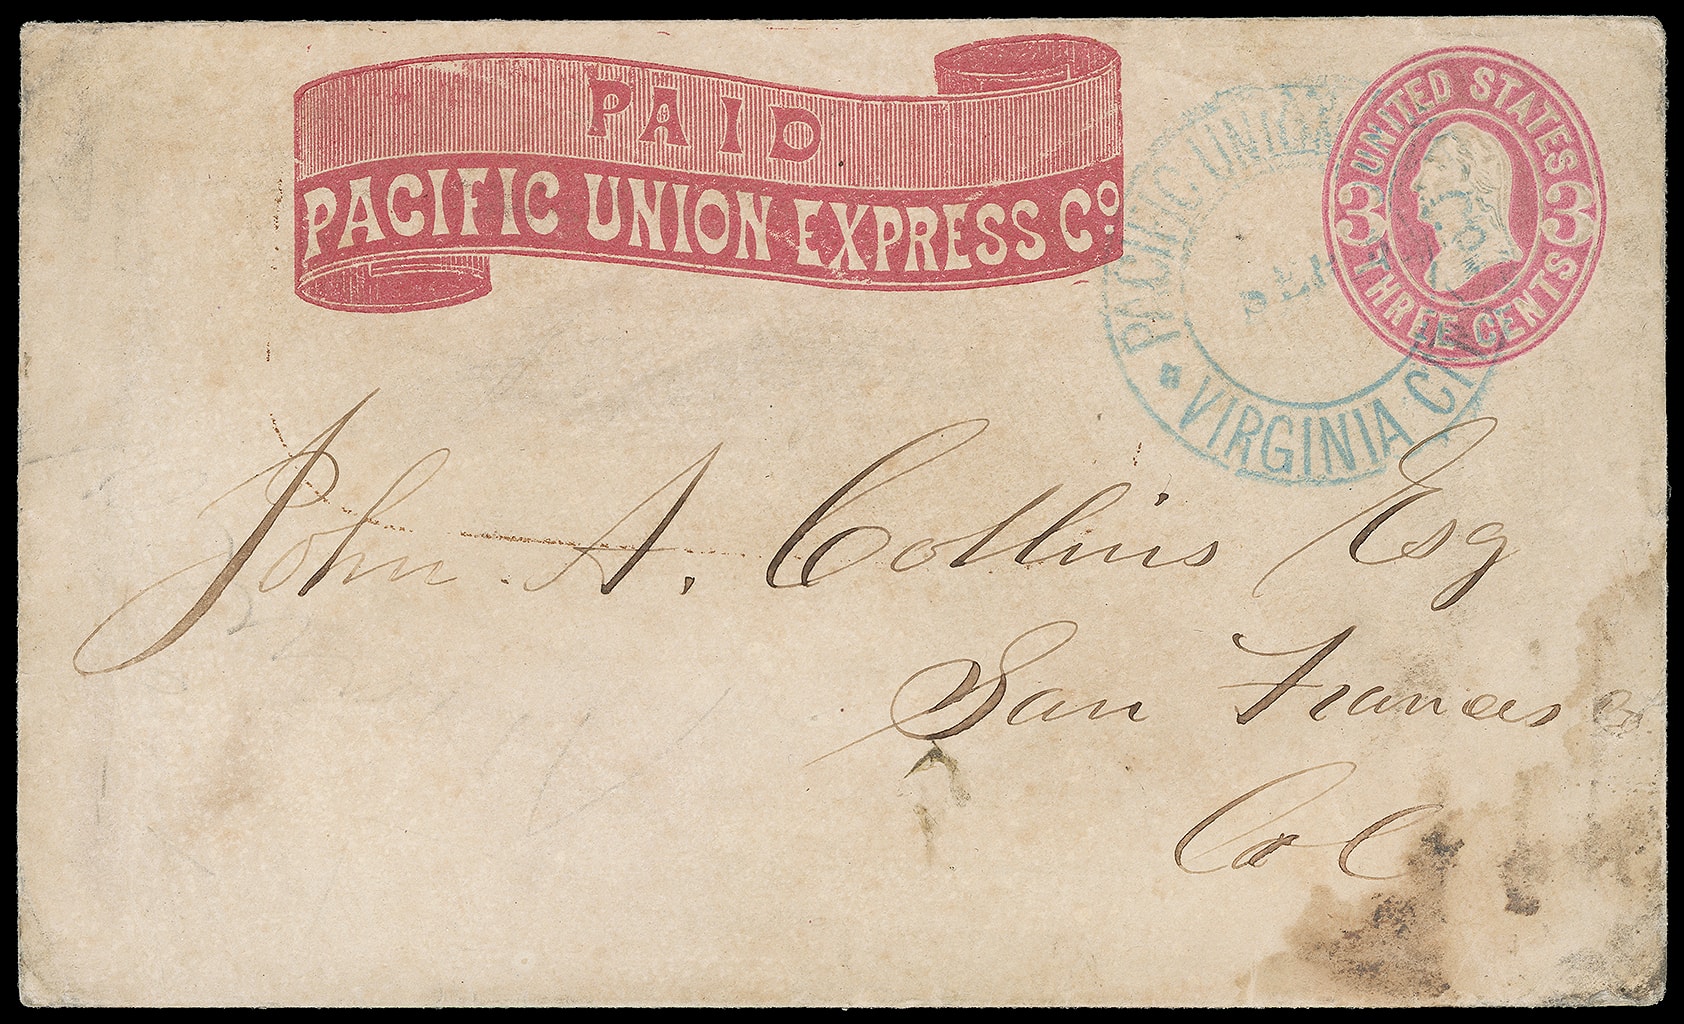 PAID
PACIFIC UNION EXPRESS Co.
UNITED STATES
3 3
THREE CENTS
PACIFIC UNION
VIRGINIA CITY
John A. Collins Esq
San Francisco
Cal